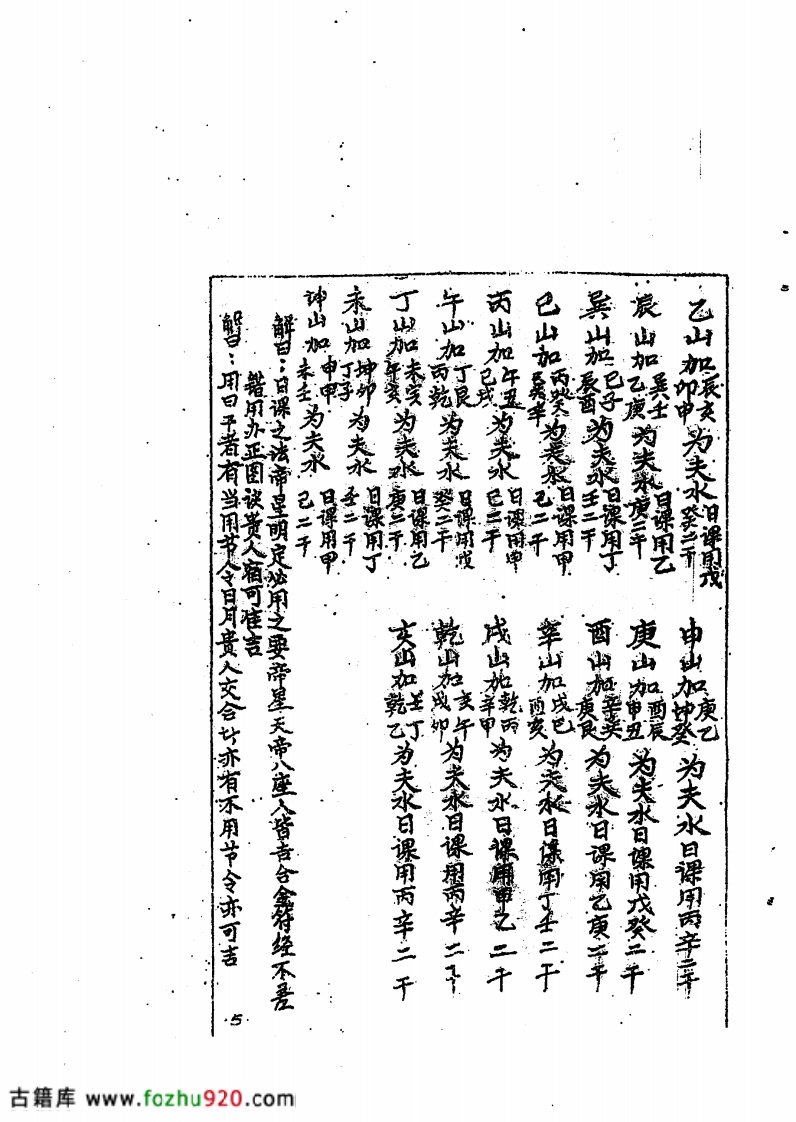 乙山加辰亥卯申为夫水日课用戊癸二干
辰山加巽壬乙庚为夫水日课用乙庚二干
巽山加巳子辰酉为夫水日课用丁壬二干
巳山加丙癸巽辛为夫水日课用甲己二干
丙山加午丑巳戌为夫水日课用甲己二干
午山加丁艮丙乾为夫水日课用戊癸二干
丁山加未亥午亥为夫水日课用乙庚二干
未山加坤卯丁子为夫水日课用丁壬二干
坤山加申甲未壬为夫水日课用甲己二干
申山加庚乙坤癸为夫水日课用丙辛二干
庚山加酉辰申丑为夫水日课用戊癸二干
酉山加辛癸庚艮为夫水日课用乙庚二干
辛山加戌巳酉亥为夫水日课用丁壬二干
戌山加乾丙辛甲为夫水日课用甲乙二干
乾山加亥午戌卯为夫水日课用丙辛二干
亥山加壬丁乾乙为夫水日课用丙辛二干
解曰：日课之法帝星明定必用之要帝星天帝八座人皆吉合金符经不吾
用办正图谈贵人宿可准吉
解曰：用日干者有当用节令日月贵人交合亦有不用节令亦可吉
5
古籍库 www.fozhu920.com